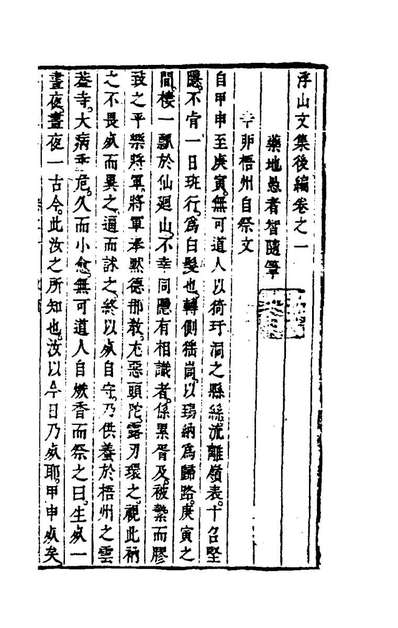 浮山文集後編卷之一
藥地愚者智隨筆
辛卯梧州自祭文
自甲申至庚寅無可道人以猗玗洞之縣絲流離嶺表十召堅
隱不肯一日班行爲白髮也轉側猺峒以瑒納爲歸路庚寅之
閒棲一瓢於仙迴山不幸同隱有相識者係累胥及被縶而膠
致之平樂將軍將軍奉默德那教尤惡頭陀露刃環之視此衲
之不畏死而異之逼而訹之終以死自守乃供養於梧州之雲
葢寺大病垂危久而小愈無可道人自爇香而祭之曰生死一
晝夜晝夜一古今此汝之所知也汝以今日乃死耶甲申死矣